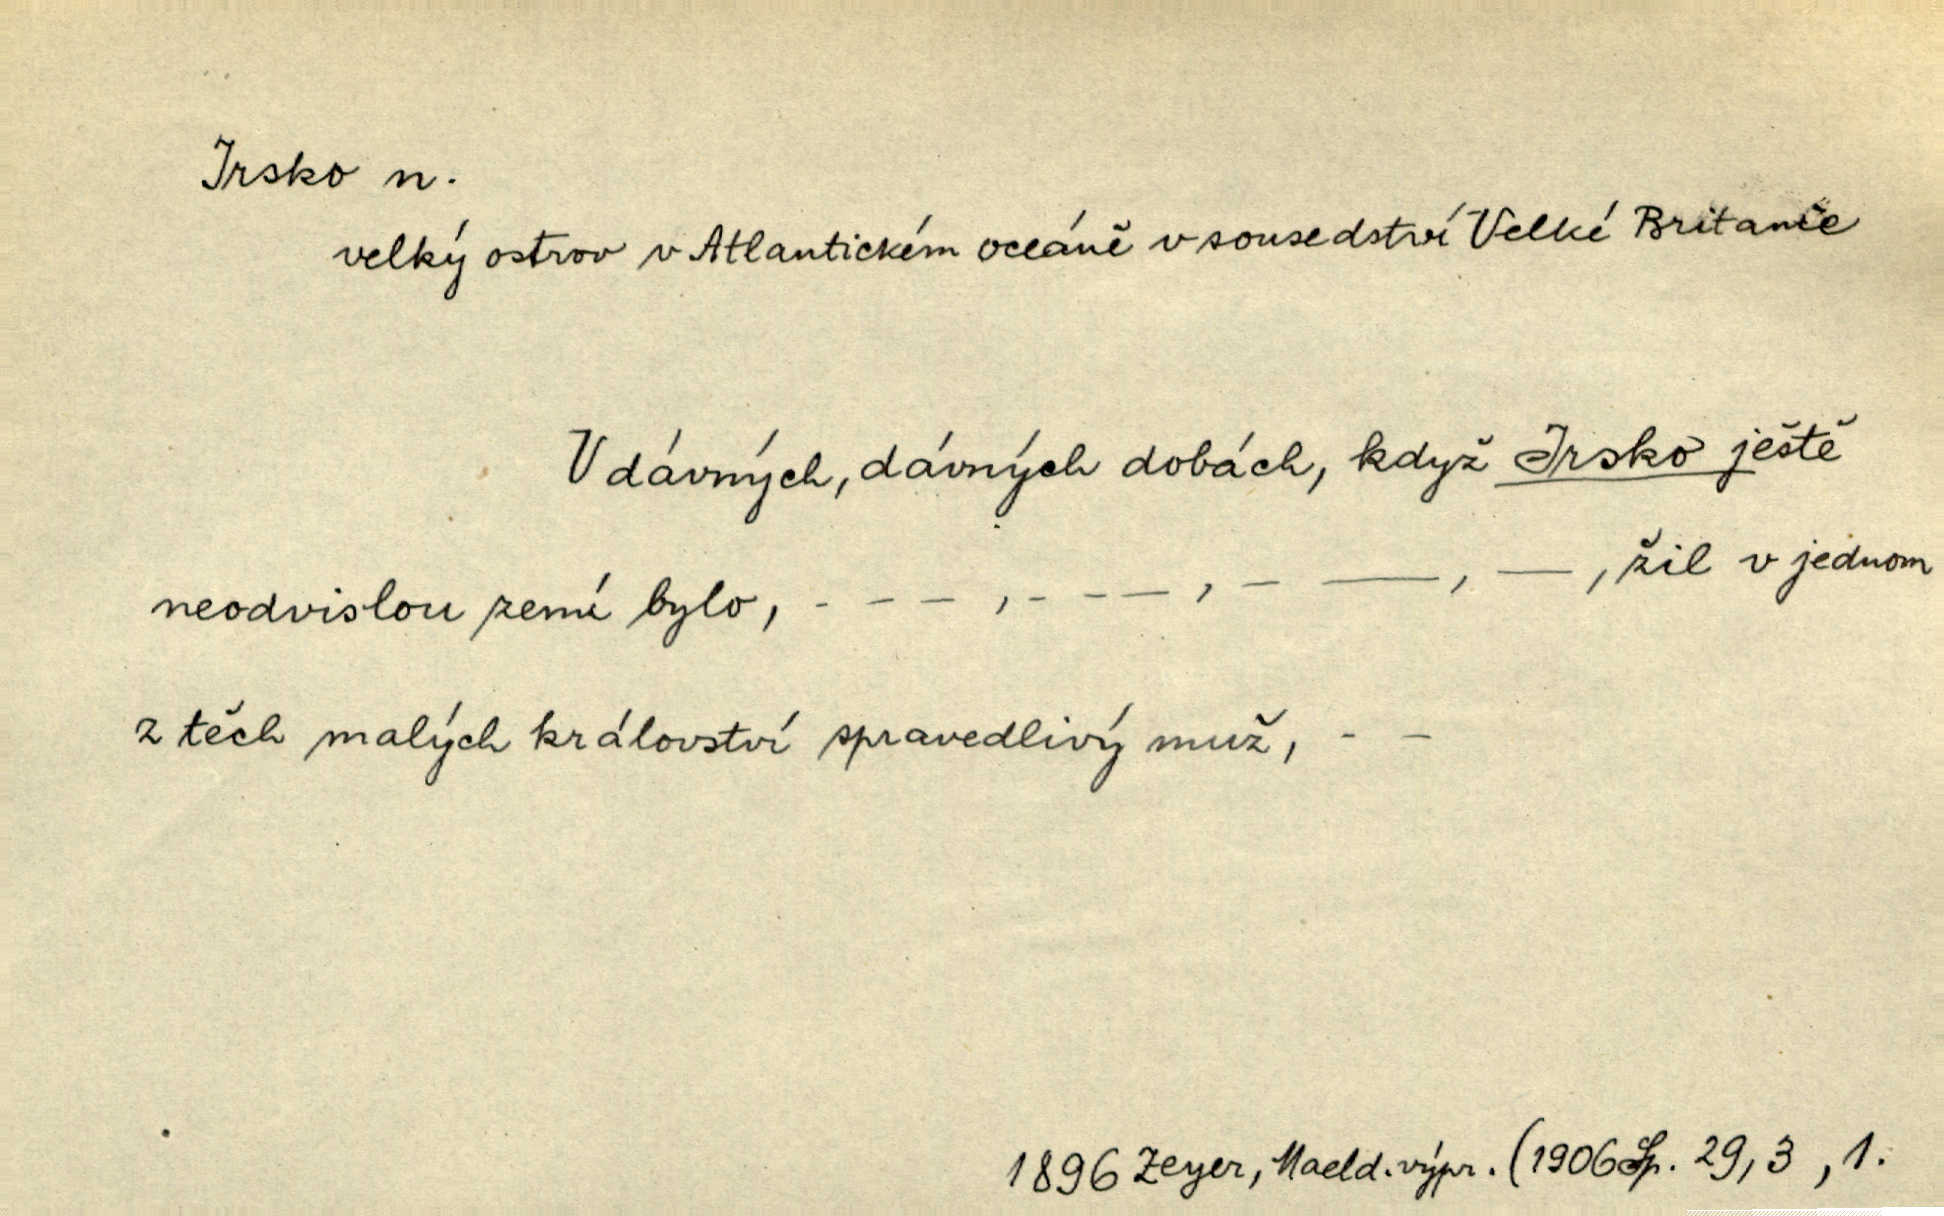 Irsko n.
velký ostrov v Atlantickém oceáně v sousedství Velké Britanie
V dávných, dávných dobách, když Irsko ještě
neodvislou zemí bylo, - - - , - - - , - - , - , žil v jednom
z těch malých království spravedlivý muž, - -
1896 Zeyer, Maeld. výpr. (1906 Sp. 29, 3 , 1.